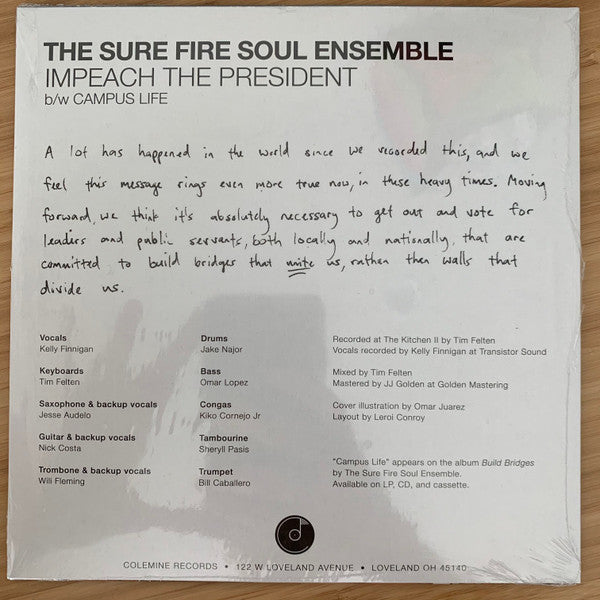 THE SURE FIRE SOUL ENSEMBLE
IMPEACH THE PRESIDENT
b/w CAMPUS LIFE
A lot has happened in the world since we recorded this, and we
feel this message rings even more true now, in these heavy times. Moving
forward, we think it's absolutely necessary to get out and vote for
leaders and public servants, both locally and nationally, that are
committed to build bridges that unite us, rather then walls that
divide us.
Vocals
Kelly Finnigan
Keyboards
Tim Felten
Saxophone & backup vocals
Jesse Audelo
Guitar & backup vocals
Nick Costa
Trombone & backup vocals
Wili Fleming
Drums
Jake Najor
Bass
Omar Lopez
Congas
Kiko Cornejo Jr
Tambourine
Sheryll Pasis
Trumpet
Bill Caballero
Recorded at The Kitchen II by Tim Felten
Vocals recorded by Kelly Finnigan at Transistor Sound
Mixed by Tim Felten
Mastered by JJ Golden at Golden Mastering
Cover illustration by Omar Juarez
Layout by Leroi Conroy
"Campus Life" appears on the album Build Bridges
by The Sure Fire Soul Ensemble.
Available on LP, CD, and cassette.
COLEMINE RECORDS • 122 W LOVELAND AVENUE • LOVELAND OH 45140